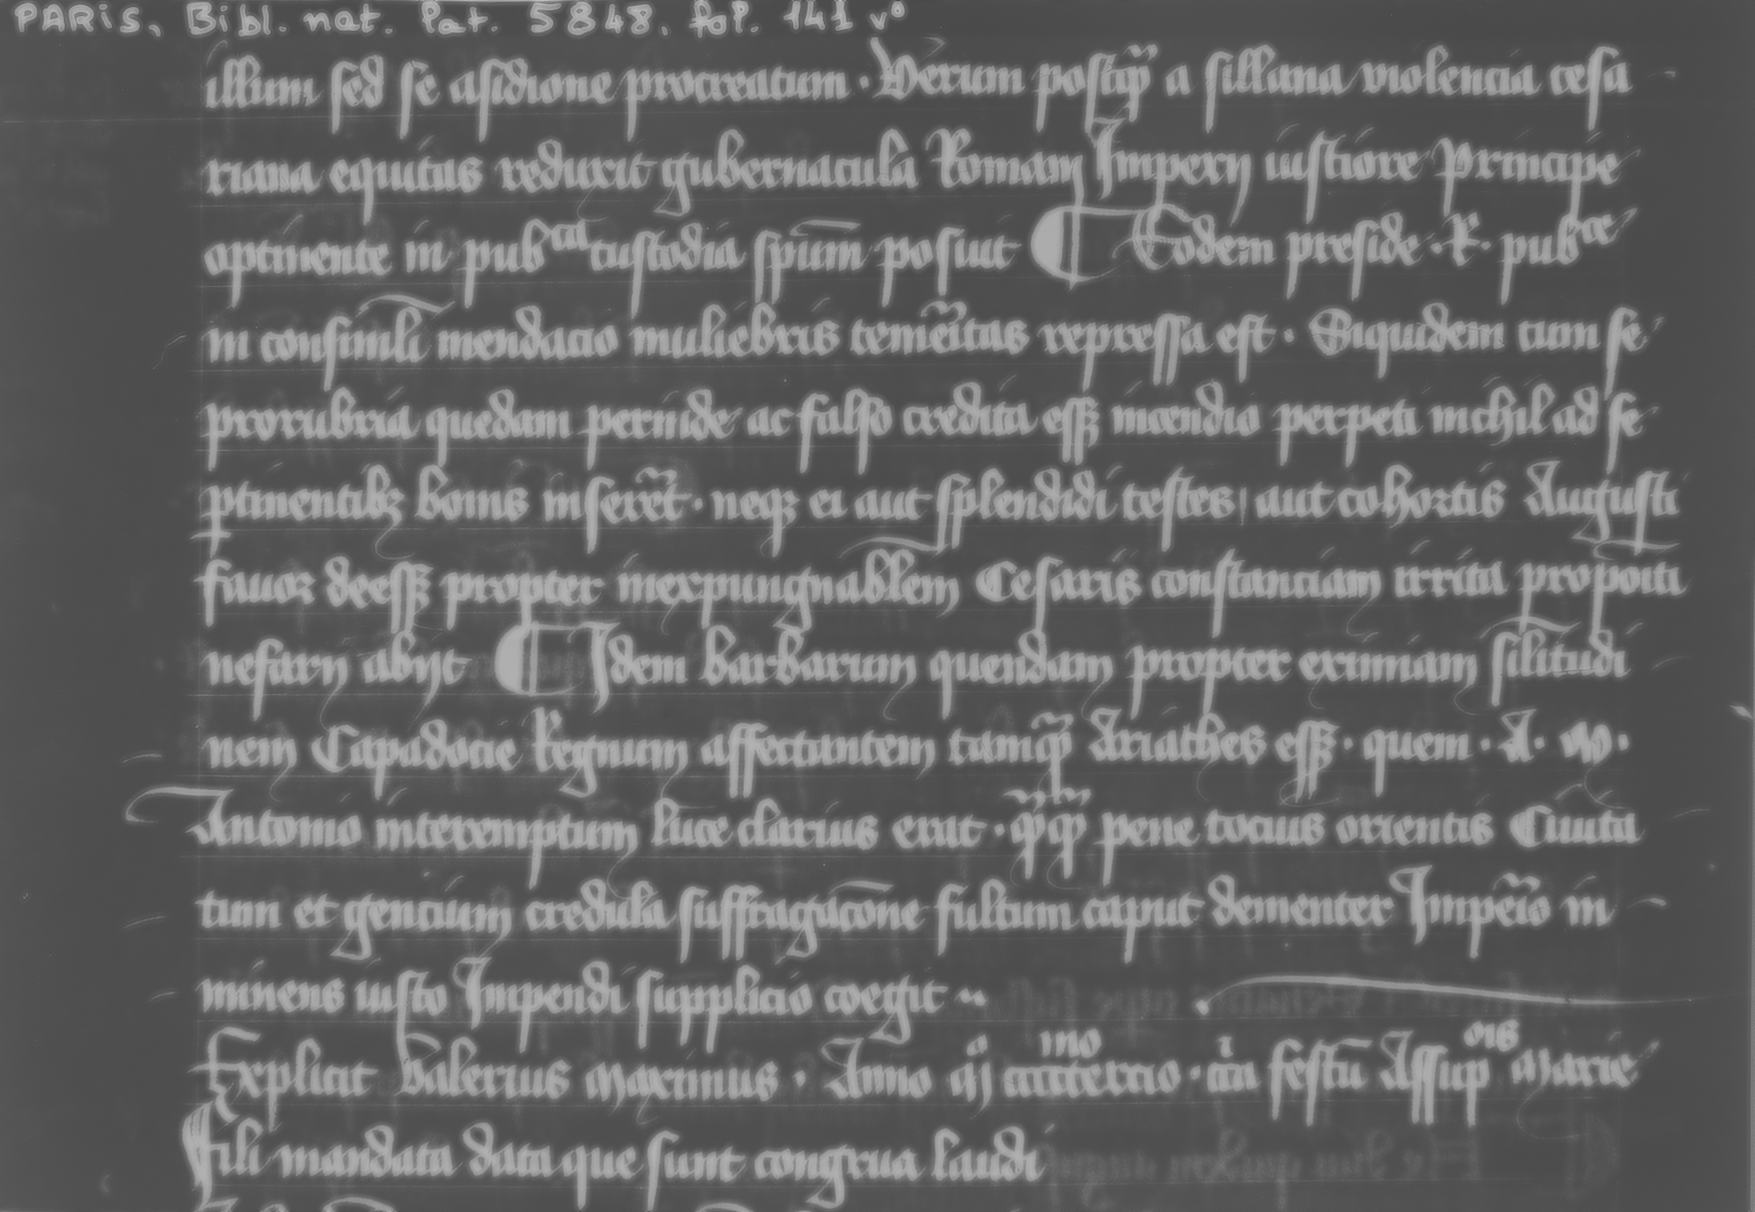 PARIS, Bibl. nat. lat. 5848, fol. 141 v°
illum sed se asidione procreatum . Verum postq̃ a sillana violencia cesa
riana equitas reduxit gubernacula Romanj Imperij iustiore principe
optinente in pub^ca custodia sp̄um posuit ¶ Eodem preside . R . pub^ce
in consimili mendacio muliebris temẽitas repressa est . Siquidem cum se
prorubria quedam perinde ac falso credita essꝫ incendio perpeti nichil ad se
ꝑtinentibꝫ bonis inserẽt . neqꝫ ei aut splendidi testes aut cohortis Augusti
fauor deessꝫ propter inexpungnabl̄em Cesaris constanciam irrita propoiti
nefarij abijt ¶ Idem barbarum quendam propter eximiam sil̄itudi
nem Capadocie Regnum affectantem tamq̃ Ariathes essꝫ . quem . A . M .
Antonio interemptum luce clarius erat . q̃q̃ pene tocius orientis Ciuita
tum et gencium credula suffragac̄one fultum caput dementer Impẽio in
minens iusto Impendi supplicio coegit
Explicit valerius maximus . Anno festū Assup^ois Marie
Fili mandata data que sunt congrua laudi